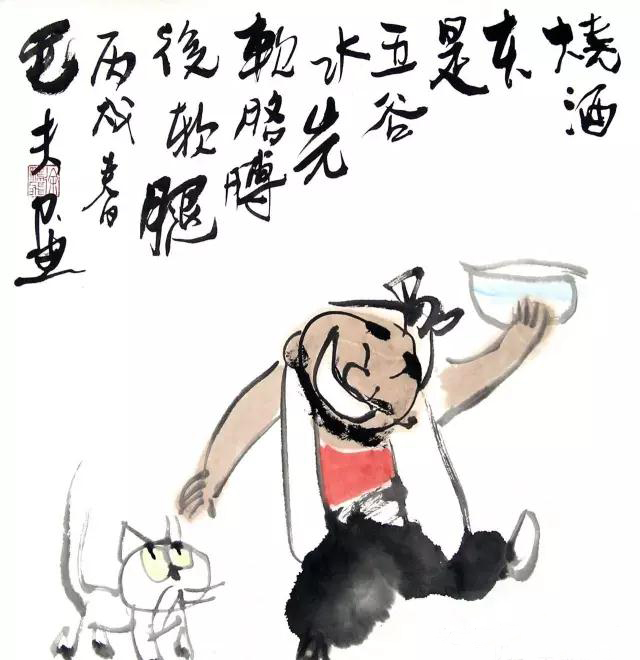 燒酒
本
是
五谷
水先
軟胳膊
後軟腿
丙戌春
毛夫画